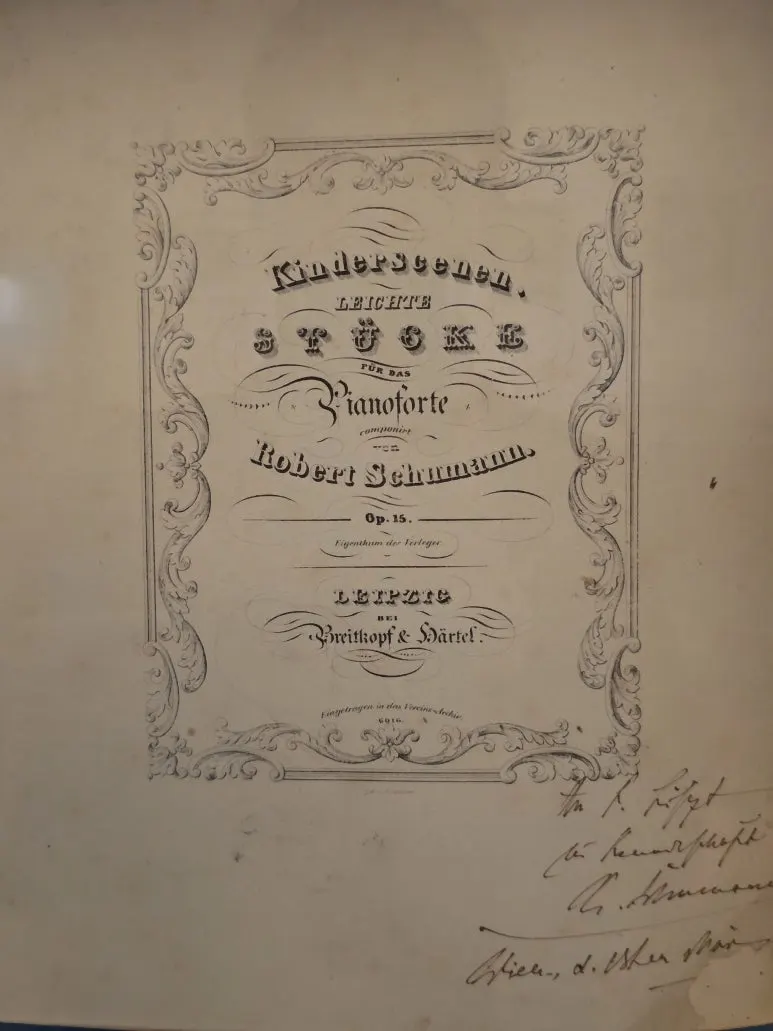 Kinderscenen.
LEICHTE
STÜCKE
FÜR DAS
Pianoforte
componirt
von
Robert Schumann.
Op. 15.
Eigenthum der Verleger
LEIPZIG
BEI
Breitkopf & Härtel.
Eingetragen in das Vereins-Archiv.
6016.
An F. Liszt
in Freundschaft
R. Schumann
Wien, d.